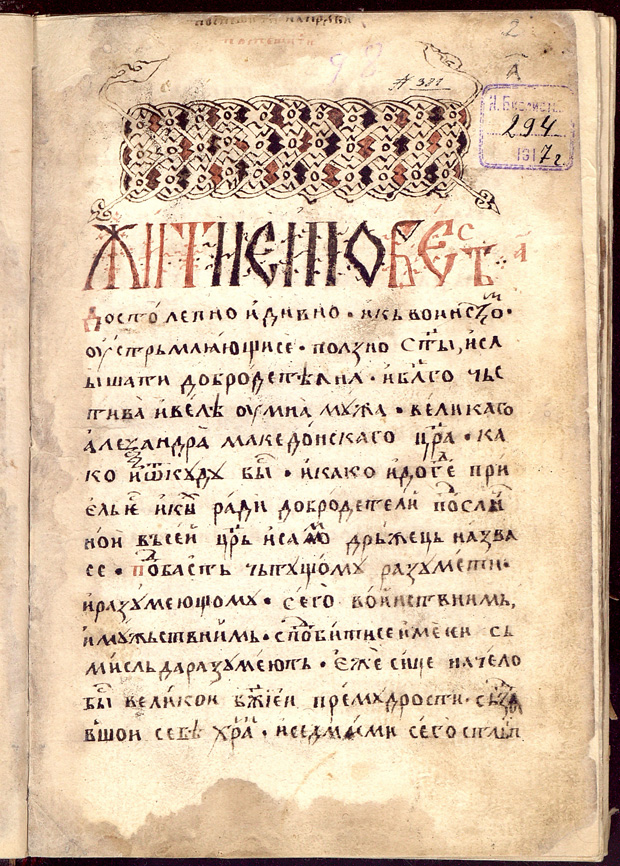 2
А
№ 381
Н. Библиот.
294
1917 г
житие и повест
достолепно и дивно · ꙗкъ воинством ·
оустрьмлꙗющисе · ползно ст҃ы, и сл
ышати добродетѣлна · и бл҃го чьс
тива и велѣ оумна мꙋжа · великаго
алеѯандра македонскаго цр҃а · ка
ко и ѿкꙋдꙋ бы · и како и до
рꙋди добродетели
нои въсеи цр҃ь и само дрьжець назва
се · подобаеть чьтꙋщомꙋ разꙋмети ·
и разꙋмеющомꙋ · сего воинствнимь,
и мꙋжьствнимь · сподобитисе и
мисль да разꙋмеють · еже сице начело
бы великои бж҃иеи премꙋдрости ·
вшои себѣ храм · и седмами сего стльп